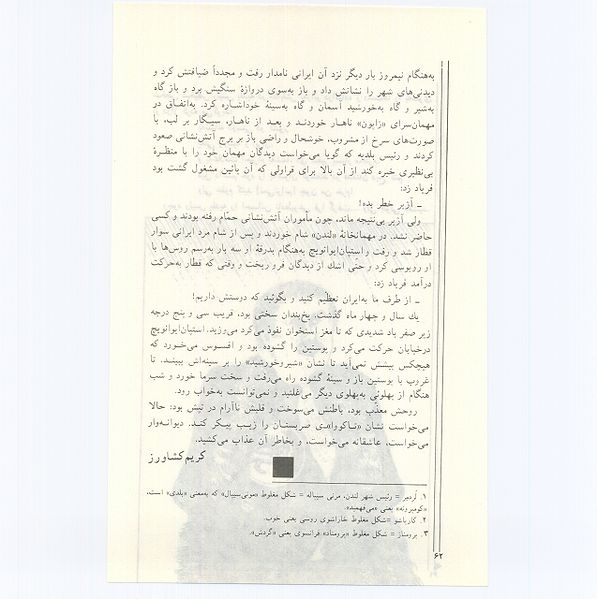 به‌هنگام نیمروز بار دیگر نزد آن ایرانی نامدار رفت و مجدداً ضیافتش کرد و
دیدنی‌های شهر را نشانش داد و باز به‌سوی دروازهٔ سنگیش برد و باز گاه
به‌شیر و گاه به‌خورشید آسمان و گاه به‌سینهٔ خوداشاره کرد. به‌اتفاق در
مهمان‌سرای «ژاپون» ناهار خوردند و بعد از ناهار، سیگار بر لب، با
صورت‌های سرخ از مشروب، خوشحال و راضی باز بر برج آتش‌نشانی صعود
کردند و رئیس بلدیه که گویا می‌خواست دیدگان مهمان خود را با منظرهٔ
بی‌نظیری خیره کند از آن بالا برای قراولی که آن پائین مشغول گشت بود
فریاد زد:
ـ آژیر خطر بده!
ولی آژیر بی‌نتیجه ماند، چون مأموران آتش‌نشانی حمّام رفته بودند و کسی
حاضر نشد. در مهمانخانهٔ «لندن» شام خوردند و پس از شام مرد ایرانی سوار
قطار شد و رفت واستپان‌ایوانویچ به‌هنگام بدرقهٔ او سه بار به‌رسم روس‌ها با
او روبوسی کرد و حتّی اشك از دیدگان فرو ریخت و وقتی که قطار به‌حرکت
درآمد فریاد زد:
ـ از طرف ما به‌ایران تعظیم کنید و بگوئید که دوستش داریم!
یك سال و چهار ماه گذشت. یخ‌بندان سختی بود، قریب سی و پنج درجه
زیر صفر باد شدیدی که تا مغز استخوان نفوذ می‌کرد می‌وزید. استپان‌ایوانویچ
درخیابان حرکت می‌کرد و پوستین را گشوده بود و افسوس می‌خورد که
هیچکس پیشش نمی‌آید تا نشان «شیروخورشید» را بر سینه‌اش ببیند. تا
غروب با پوستین باز و سینهٔ گشوده راه می‌رفت و سخت سرما خورد و شب
هنگام از پهلوئی به‌پهلوی دیگر می‌غلتید و نمی‌توانست به‌خواب رود.
روحش معذّب بود، باطنش می‌سوخت و قلبش ناآرام در تپش بود: حالا
می‌خواست نشان «تاکووا»ی صربستان را زیب پیکر کند. دیوانه‌وار
می‌خواست، عاشقانه می‌خواست، و بخاطر آن عذاب می‌کشید.
کریم کشاورز
۱. لُردمِر = رئیس شهر لندن، مرنی سیپاله = شکل مغلوط «مونی‌سیپال» که به‌معنی «بلدی» است،
«کومپرونه» یعنی «می‌فهمید».
۲. کاراشو = شکل مغلوط خاراشوی روسی یعنی خوب.
۳. پرومناژ = شکل مغلوط «پرومناد» فرانسوی یعنی «گردش».
۶۲